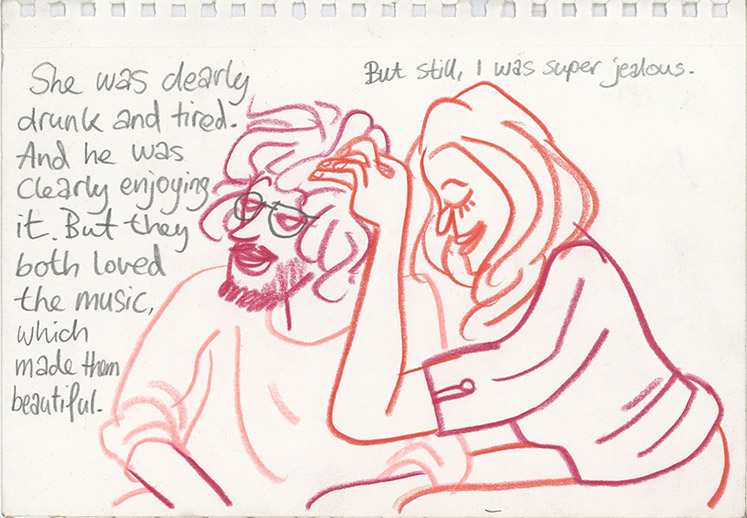 She was clearly
drunk and tired.
And he was
clearly enjoying
it. But they
both loved
the music,
which
made them
beautiful.
But still, I was super jealous.